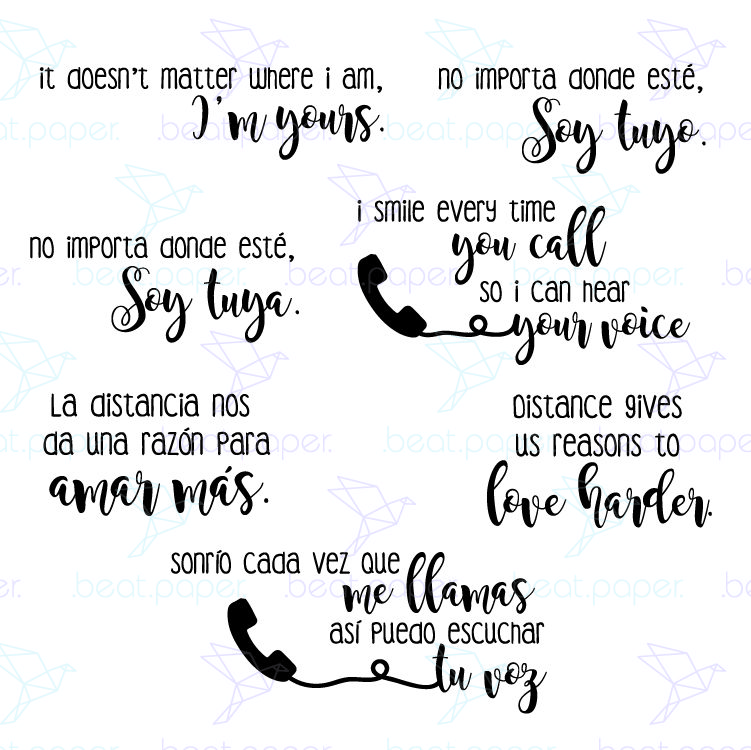 it doesn't matter where i am,
I'm yours.
no importa donde esté,
Soy tuyo.
no importa donde esté,
Soy tuya.
i smile every time
you call
so i can hear
your voice
La distancia nos
da una razón para
amar más.
Distance gives
us reasons to
love harder.
sonrío cada vez que
me llamas
así puedo escuchar
tu voz
.beat.paper.